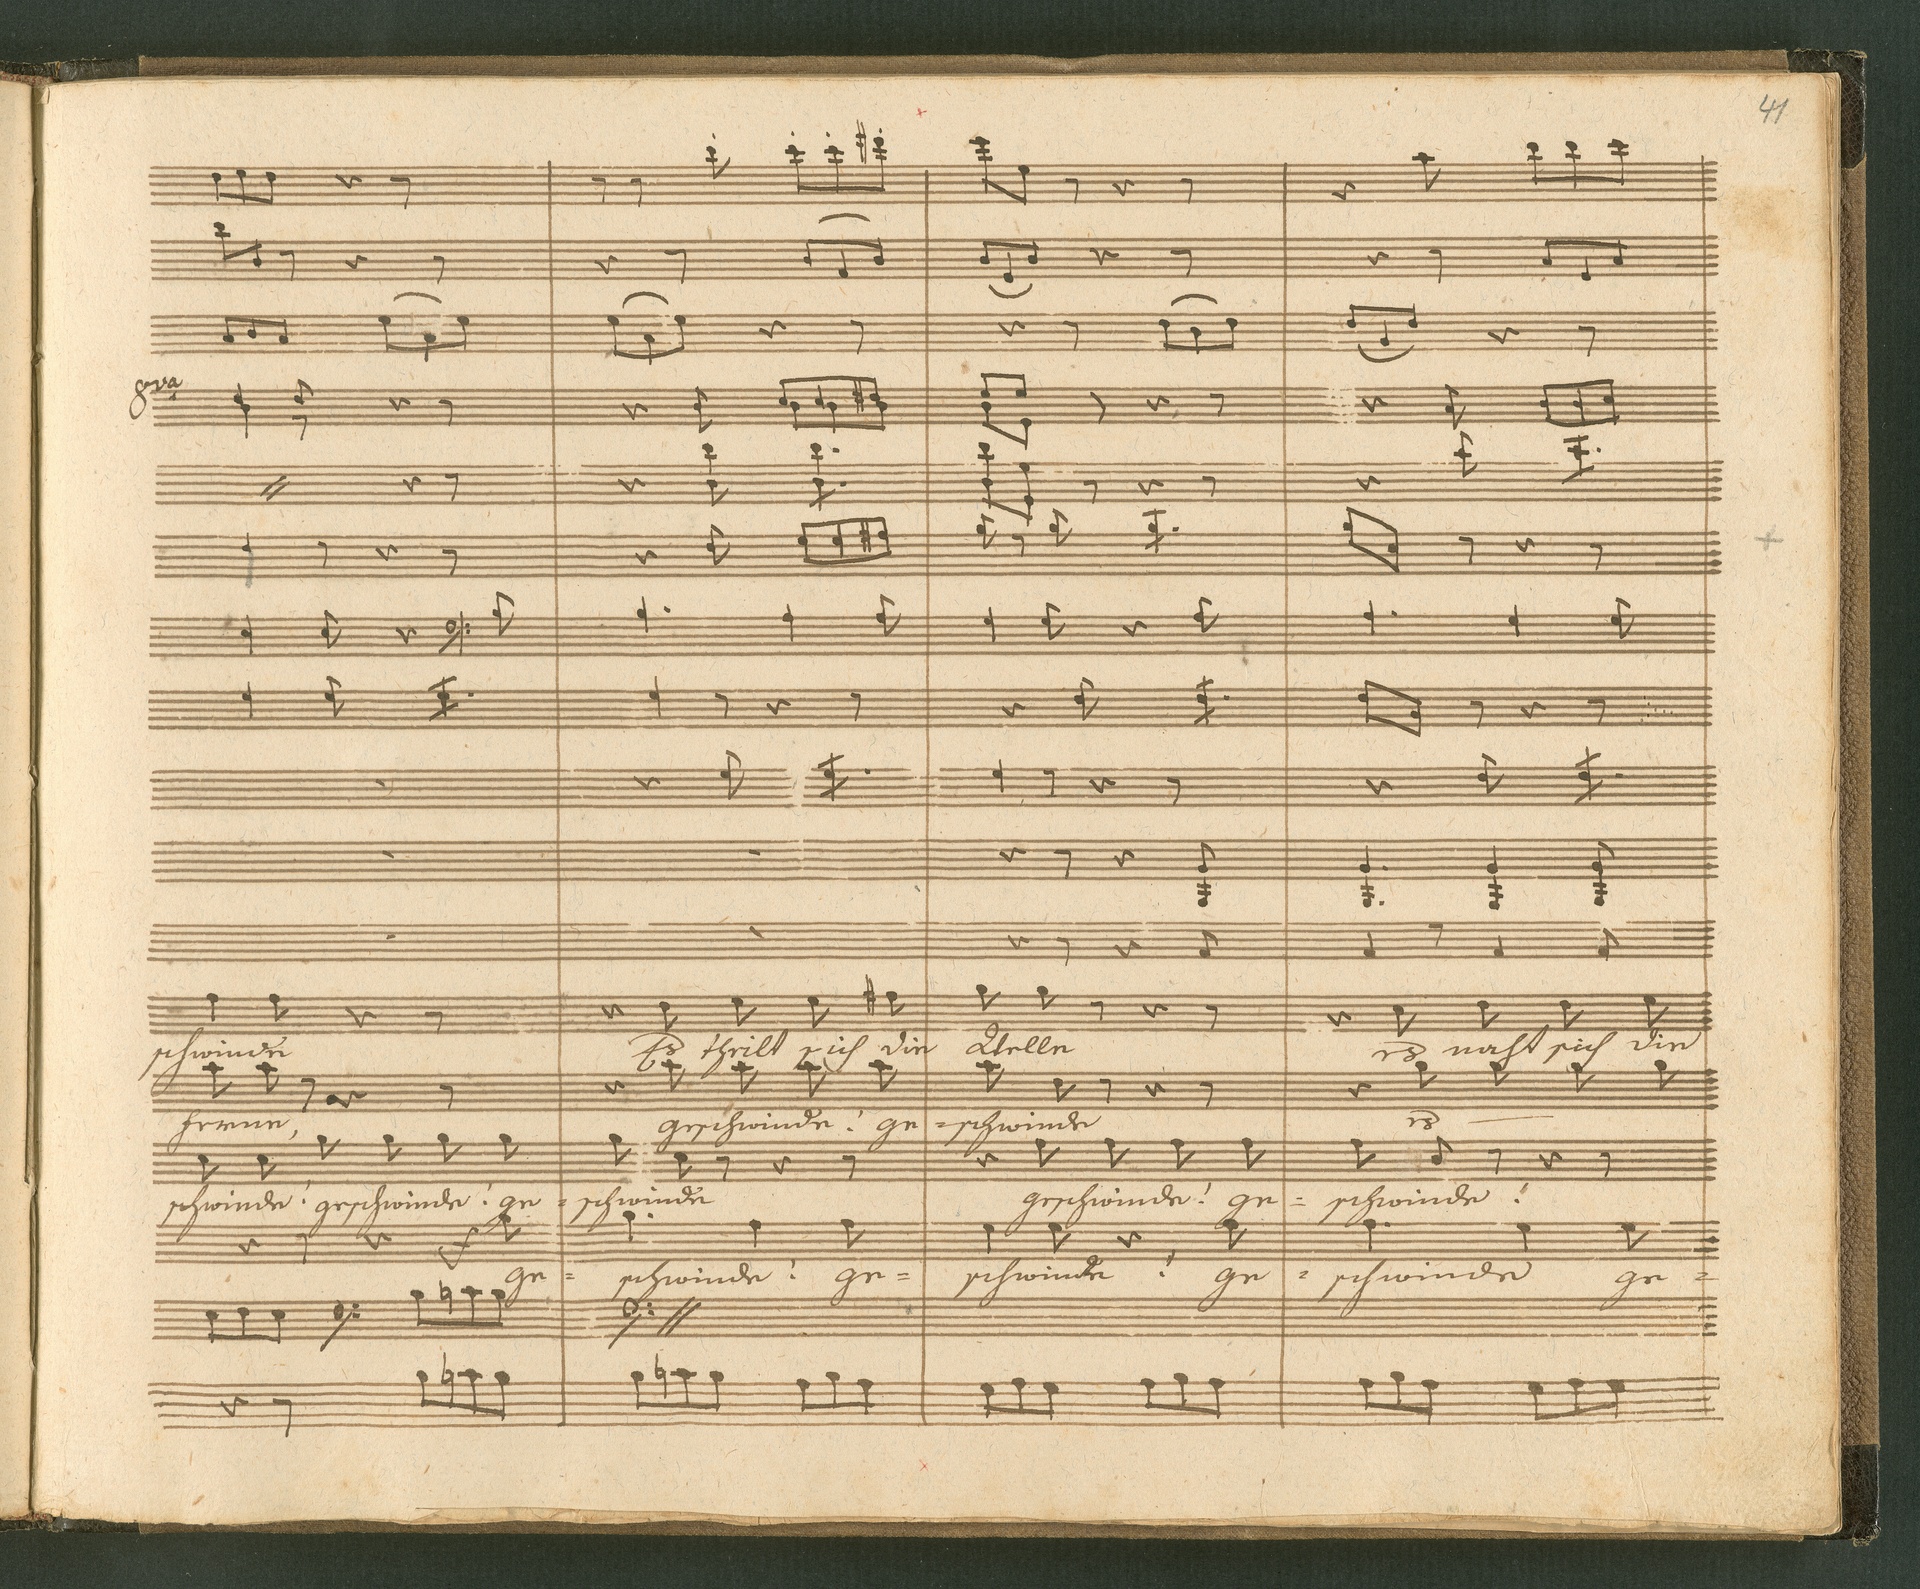 41
8va
schwinde Es theilt sich die Welle es naht sich die
ferne, geschwinde! ge=schwinde es
schwinde! geschwinde! ge=schwinde geschwinde! ge=schwinde!
f
ge=schwinde! ge=schwinde! ge=schwinde ge=